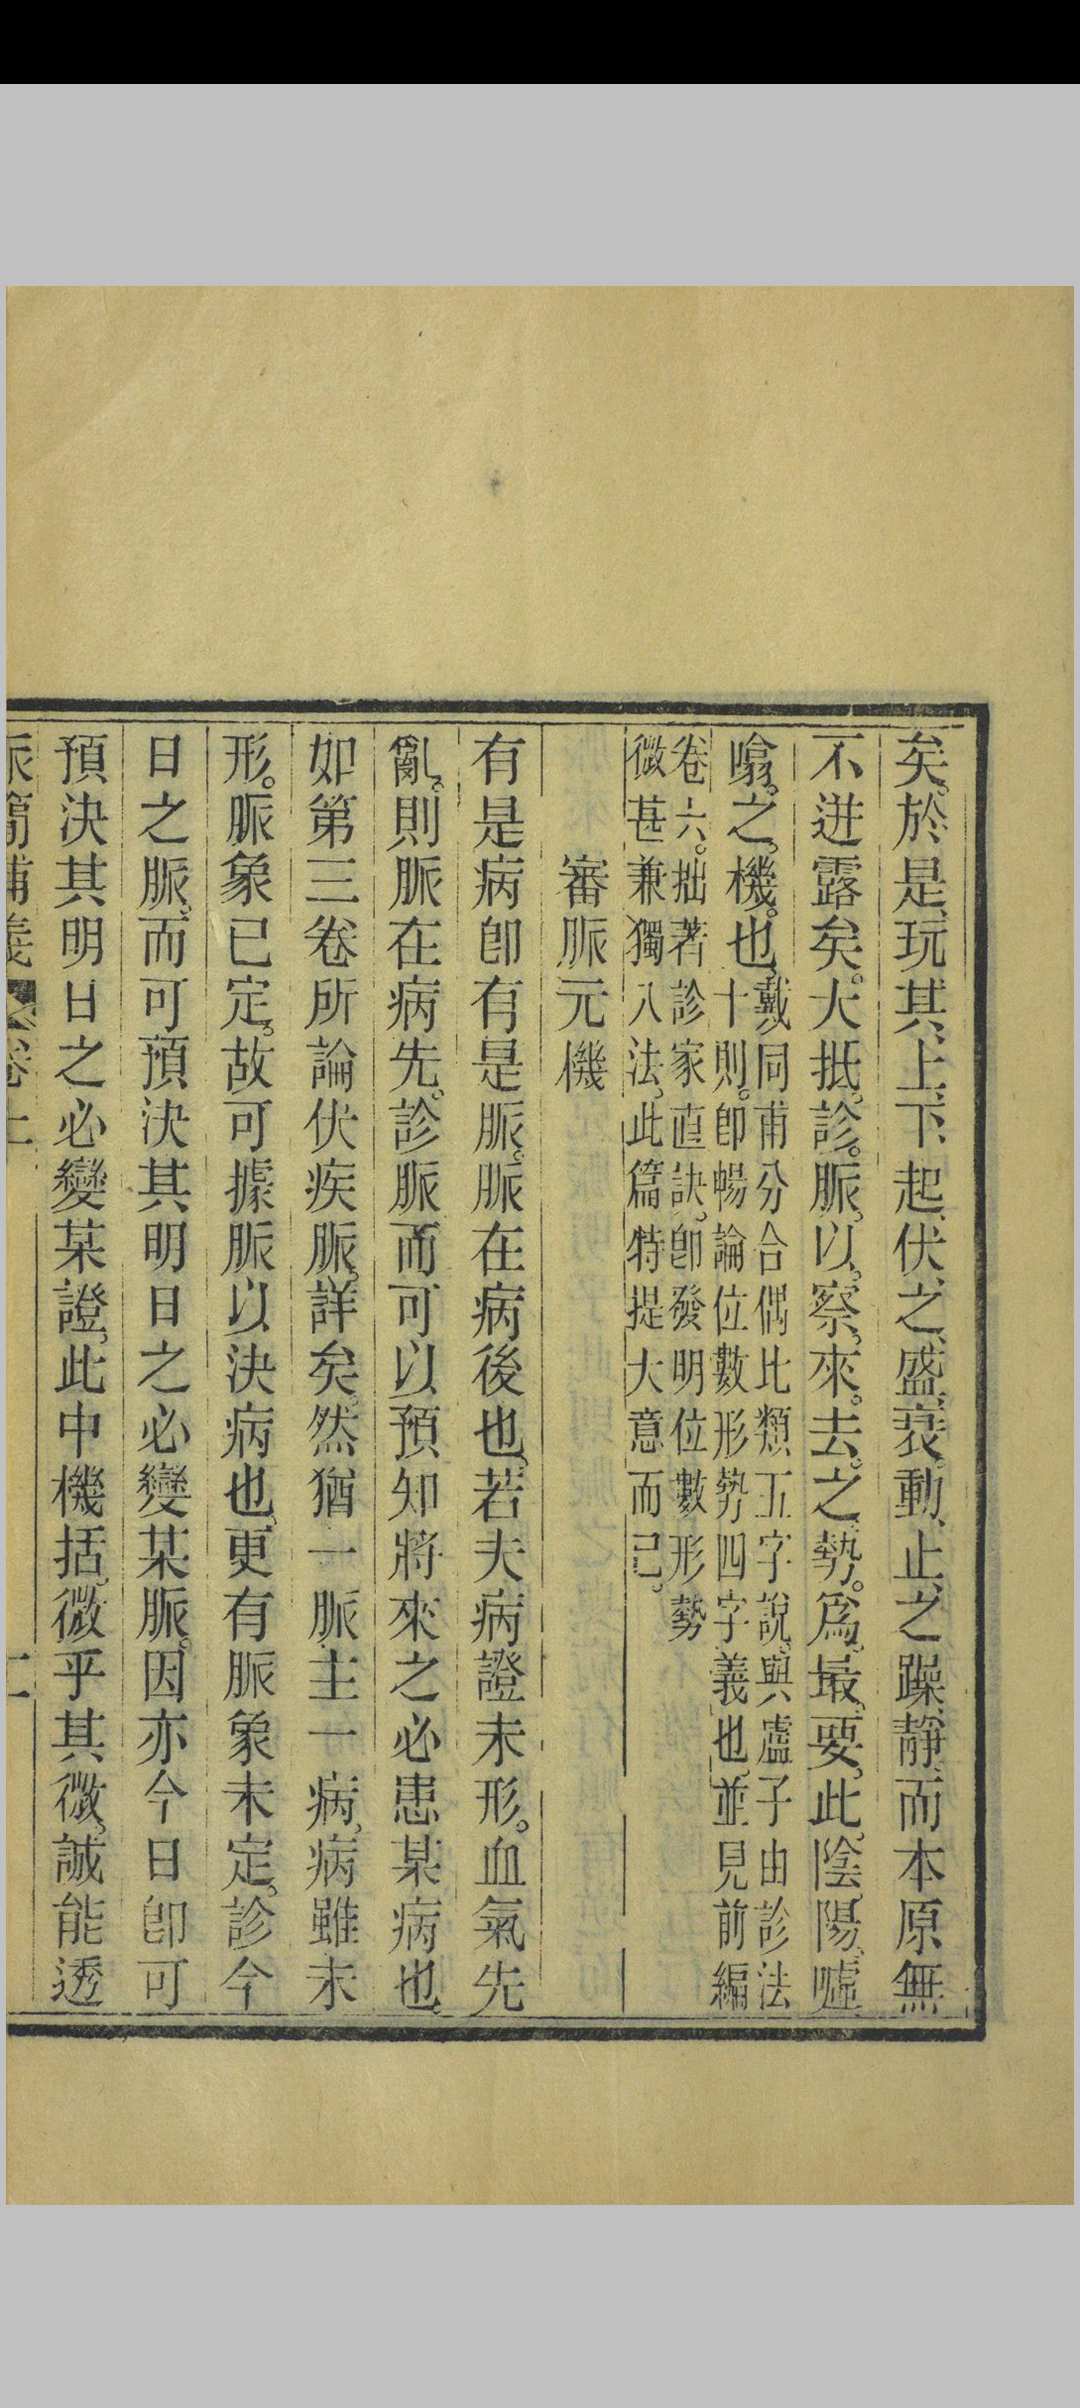 矣。於是玩其上下起伏之盛衰動止之躁靜而本原無
不迸露矣。大抵診脈以察來去之勢爲最要。此陰陽噓
噏之機也。
戴同甫分合偶比類五字說。與盧子由診法
十則。卽暢論位數形勢四字義也。並見前編
卷六。拙著診家直訣。卽發明位數形勢
微甚兼獨八法。此篇特提大意而已。
審脈元機
有是病卽有是脈。脈在病後也。若夫病證未形。血氣先
亂。則脈在病先。診脈而可以預知將來之必患某病也。
如第三卷所論伏疾脈。詳矣。然猶一脈主一病。病雖未
形。脈象已定。故可據脈以決病也。更有脈象未定。診今
日之脈。而可預決其明日之必變某脈。因亦今日卽可
預決其明日之必變某證。此中機括。微乎其微。誠能透
脈簡補義 卷上 二